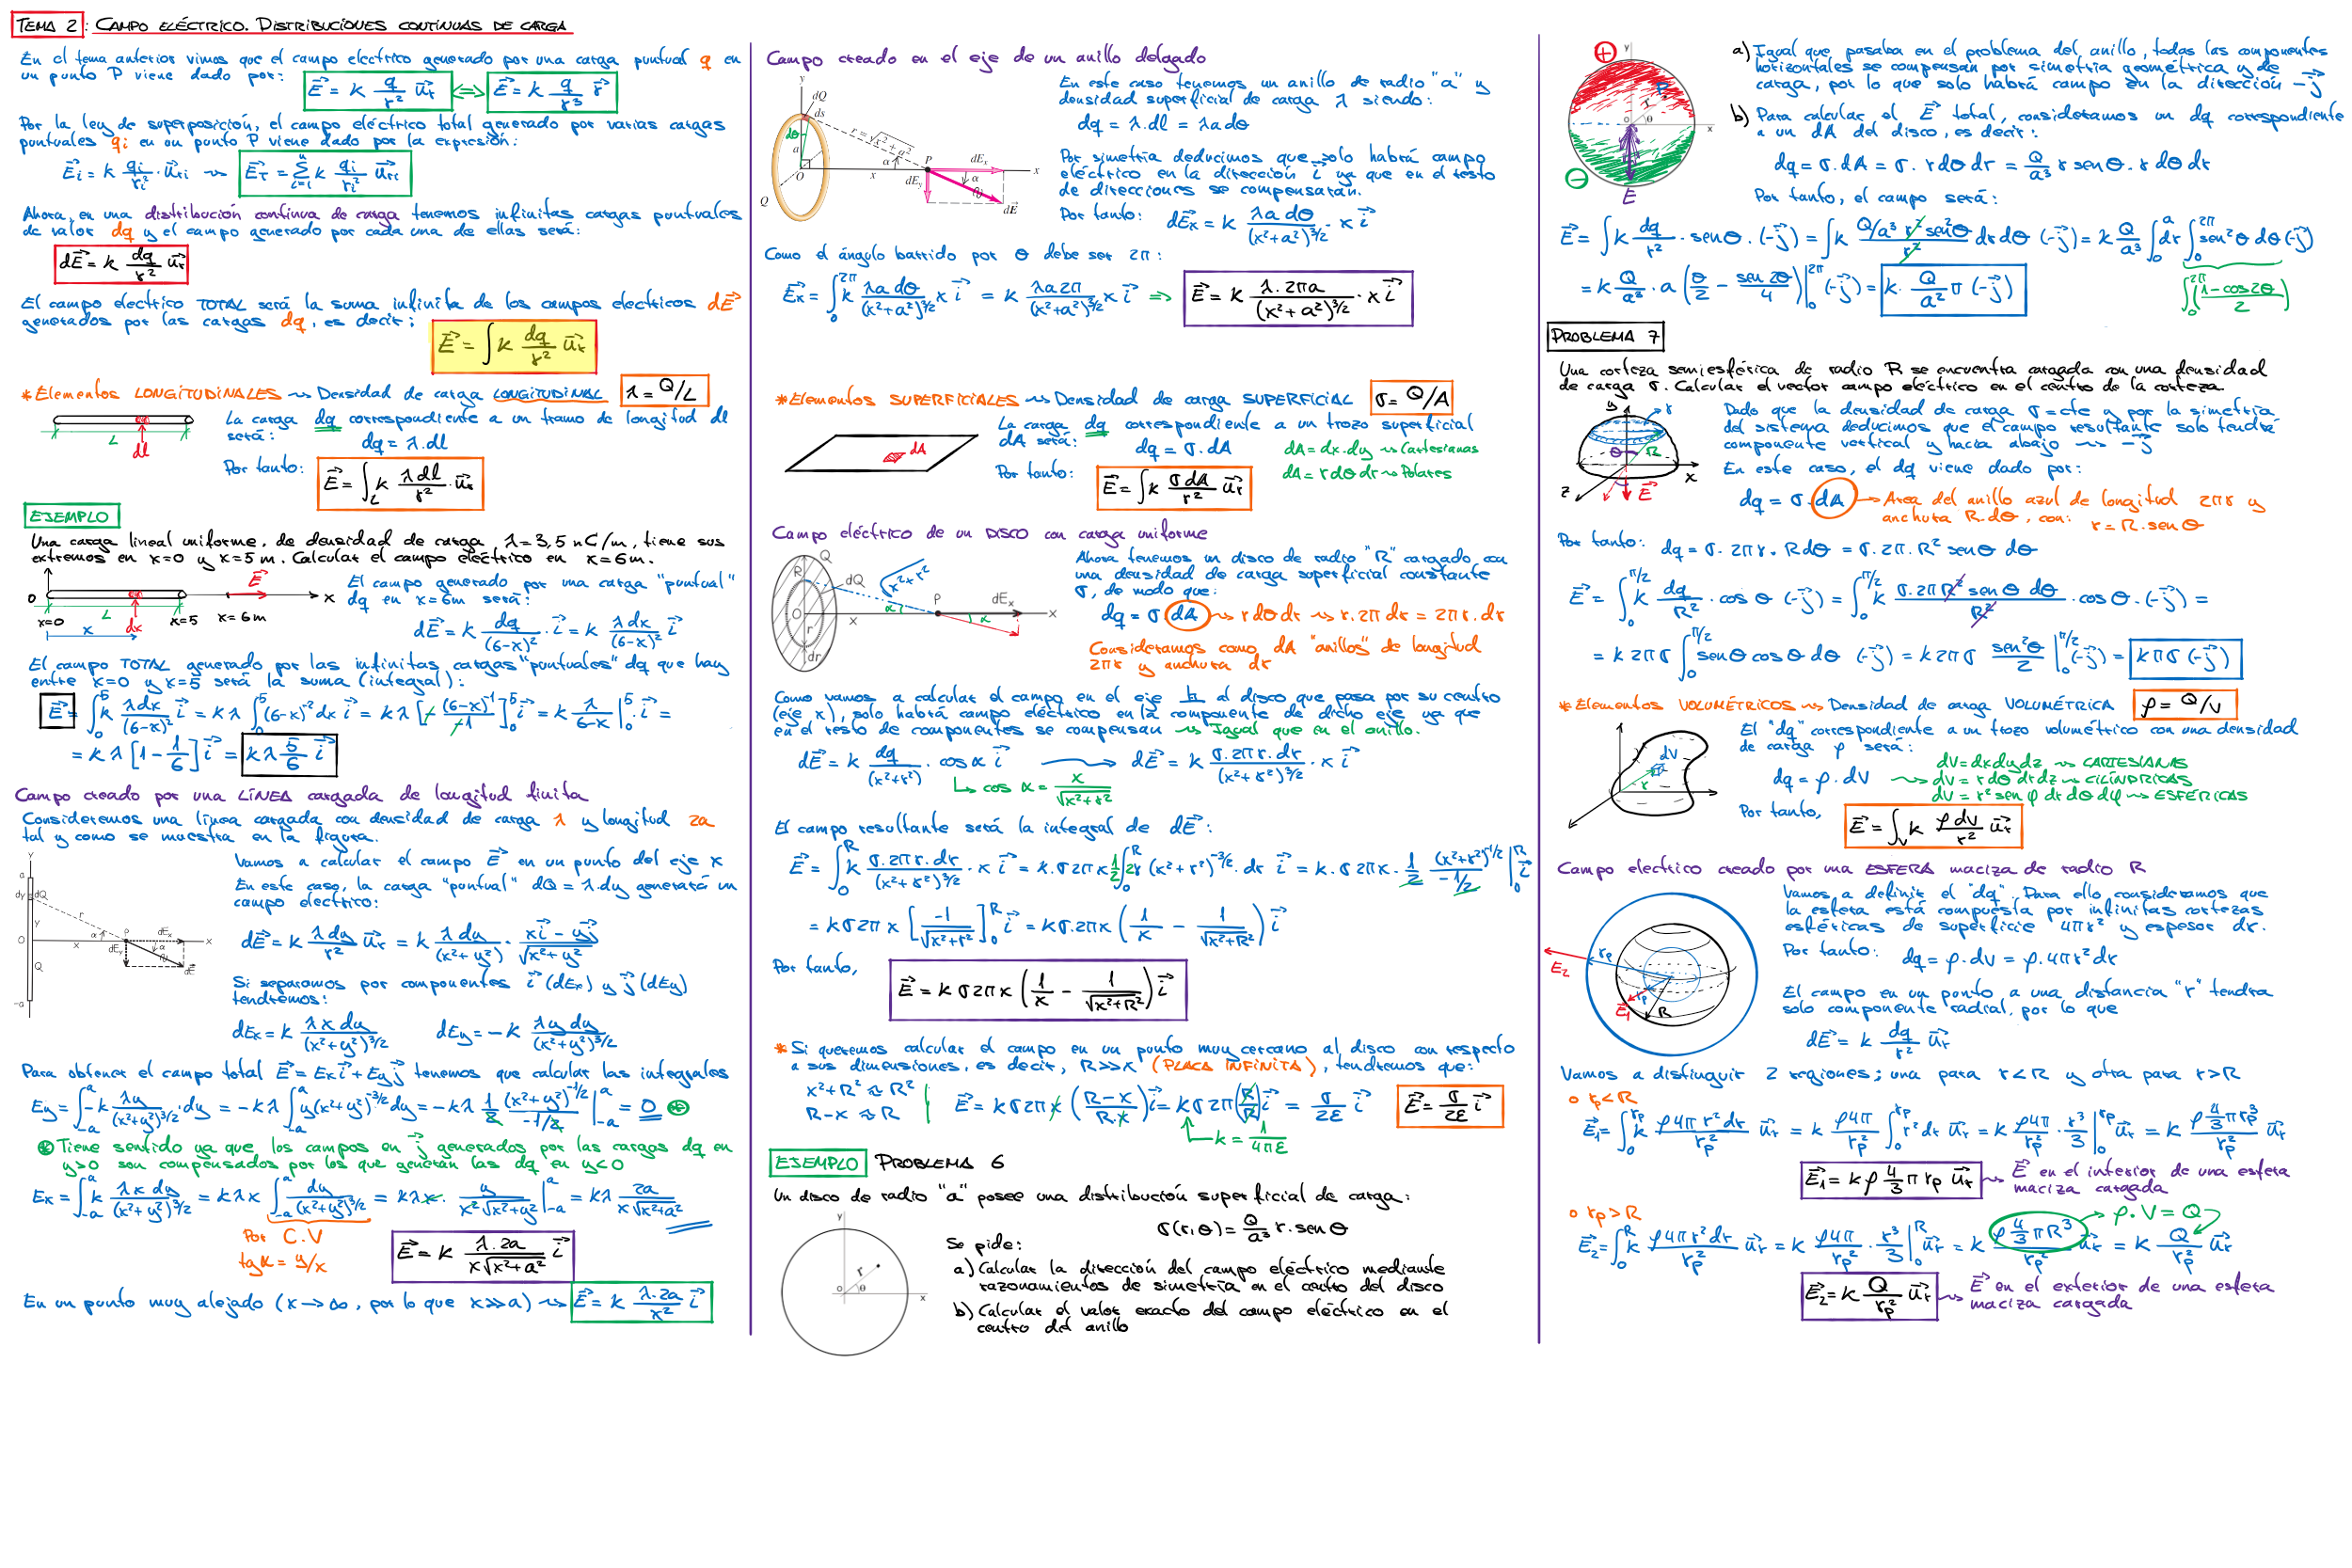 TEMA 2: CAMPO ELÉCTRICO. DISTRIBUCIONES CONTINUAS DE CARGA
En el tema anterior vimos que el campo electrico generado por una carga puntual q en
un punto P viene dado por: E = K q/r² u_r <=> E = K q/r³ r
Por la ley de superposición, el campo eléctrico total generado por varias cargas
puntuales qi en un punto P viene dado por la expresión:
Ei = K qi/ri² · u_ri ~> E_T = Σ(i=1, n) K qi/ri² u_ri
Ahora, en una distribución continua de carga tenemos infinitas cargas puntuales
de valor dq y el campo generado por cada una de ellas será:
dE = K dq/r² u_r
El campo electrico TOTAL será la suma infinita de los campos electricos dE
generados por las cargas dq, es decir:
E = ∫ K dq/r² u_r
*Elementos LONGITUDINALES ~> Densidad de carga LONGITUDINAL λ = Q/L
L dl
La carga dq correspondiente a un tramo de longitud dl
será: dq = λ.dl
Por tanto: E = ∫_L K λdl/r² · u_r
EJEMPLO
Una carga lineal uniforme, de densidad de carga λ=3,5 nC/m, tiene sus
extremos en x=0 y x=5 m. Calcular el campo eléctrico en x=6m.
0 L E x
x=0 x dx x=5 x=6m
El campo generado por una carga "puntual"
dq en x=6m será:
dE = K dq/(6-x)² · i = K λdx/(6-x)² i
El campo TOTAL generado por las infinitas cargas "puntuales" dq que hay
entre x=0 y x=5 será la suma (integral):
E = ∫₀⁵ K λdx/(6-x)² i = Kλ ∫₀⁵ (6-x)⁻² dx i = Kλ [- (6-x)⁻¹/-1]₀⁵ i = K λ/(6-x) |₀⁵ · i =
= Kλ [1 - 1/6] i = Kλ 5/6 i
Campo creado por una LÍNEA cargada de longitud finita
Consideremos una línea cargada con densidad de carga λ y longitud 2a
tal y como se muestra en la figura.
y a dy dQ r y α P dEx x O x dEy α dE Q -a
Vamos a calcular el campo E en un punto del eje x
En este caso, la carga "puntual" dQ = λ.dy generará un
campo electrico:
dE = K λdy/r² u_r = K λdy/(x²+y²) · (xi - yj)/√(x²+y²)
Si separamos por componentes i (dEx) y j (dEy)
tendremos:
dEx = K λxdy/(x²+y²)^3/2 dEy = -K λydy/(x²+y²)^3/2
Para obtener el campo total E = Ex i + Ey j tenemos que calcular las integrales
Ey = ∫₋ₐᵃ -K λy/(x²+y²)^3/2 dy = -Kλ ∫₋ₐᵃ y(x²+y²)^-3/2 dy = -Kλ 1/2 (x²+y²)^-1/2/(-1/2) |₋ₐᵃ = 0 *
* Tiene sentido ya que los campos en j generados por las cargas dq en
y>0 son compensados por los que generan las dq en y<0
Ex = ∫₋ₐᵃ K λxdy/(x²+y²)^3/2 = Kλx ∫₋ₐᵃ dy/(x²+y²)^3/2 = Kλx · y/(x²√(x²+y²)) |₋ₐᵃ = Kλ 2a/(x√(x²+a²))
Por C.V
tgα = y/x
E = K λ.2a/(x√(x²+a²)) i
En un punto muy alejado (x→∞, por lo que x>>a) ~> E = K λ.2a/x² i
Campo creado en el eje de un anillo delgado
y dQ ds dθ a r = √(x²+a²) α P dEx x O x dEy α dE Q
En este caso tenemos un anillo de radio "a" y
densidad superficial de carga λ siendo:
dq = λ.dl = λadθ
Por simetría deducimos que solo habrá campo
eléctrico en la dirección i ya que en el resto
de direcciones se compensarán.
Por tanto: dEx = K λadθ/(x²+a²)^3/2 · x i
Como el ángulo barrido por θ debe ser 2π:
Ex = ∫₀²π K λadθ/(x²+a²)^3/2 x i = K λa2π/(x²+a²)^3/2 x i => E = K λ.2πa/(x²+a²)^3/2 · x i
*Elementos SUPERFICIALES ~> Densidad de carga SUPERFICIAL σ = Q/A
dA
La carga dq correspondiente a un trozo superficial
dA será: dq = σ.dA dA = dx.dy ~> Cartesianas
dA = rdθdr ~> Polares
Por tanto: E = ∫ K σdA/r² u_r
Campo eléctrico de un DISCO con carga uniforme
Q R dQ √(x²+r²) P dEx O α x α x r dr
Ahora tenemos un disco de radio "R" cargado con
una densidad de carga superficial constante
σ, de modo que:
dq = σ dA ~> rdθdr ~> r.2πdr = 2πr.dr
Consideramos como dA "anillos" de longitud
2πr y anchura dr
Como vamos a calcular el campo en el eje ⊥ al disco que pasa por su centro
(eje x), solo habrá campo eléctrico en la componente de dicho eje ya que
en el resto de componentes se compensan ~> Igual que en el anillo.
dE = K dq/(x²+r²) · cosα i → dE = K σ.2πr.dr/(x²+r²)^3/2 · x i
↳ cosα = x/√(x²+r²)
El campo resultante será la integral de dE:
E = ∫₀ᴿ K σ.2πr.dr/(x²+r²)^3/2 · x i = K.σ2πx 1/2 ∫₀ᴿ 2r (x²+r²)^-3/2 · dr i = K.σ2πx · 1/2 (x²+r²)^-1/2/(-1/2) |₀ᴿ i
= Kσ2πx [-1/√(x²+r²)]₀ᴿ i = Kσ.2πx (1/x - 1/√(x²+R²)) i
Por tanto,
E = Kσ2πx (1/x - 1/√(x²+R²)) i
*Si queremos calcular el campo en un punto muy cercano al disco con respecto
a sus dimensiones, es decir, R>>x (PLACA INFINITA), tendremos que:
x²+R² ≈ R²
R-x ≈ R
E = Kσ2πx ((R-x)/(R.x)) i = Kσ2π (R/R) i = σ/2ε i E = σ/2ε i
K = 1/4πε
EJEMPLO PROBLEMA 6
Un disco de radio "a" posee una distribución superficial de carga:
σ(r,θ) = Q/a³ r.senθ
y r o θ x
Se pide:
a) Calcular la dirección del campo eléctrico mediante
razonamientos de simetría en el centro del disco
b) Calcular el valor exacto del campo eléctrico en el
centro del anillo
+ y R r θ x - E
a) Igual que pasaba en el problema del anillo, todas las componentes
horizontales se compensan por simetría geométrica y de
carga, por lo que solo habrá campo en la dirección -j
b) Para calcular el E total, consideramos un dq correspondiente
a un dA del disco, es decir:
dq = σ.dA = σ.rdθdr = Q/a³ r senθ.r dθdr
Por tanto, el campo será:
E = ∫ K dq/r² · senθ.(-j) = ∫ K Q/a³ r² sen²θ/r² drdθ (-j) = K Q/a³ ∫₀ᵃ dr ∫₀²π sen²θ dθ (-j)
= K Q/a³ · a (θ/2 - sen2θ/4) |₀²π (-j) = K · Q/a² π (-j)
∫₀²π (1-cos2θ)/2
PROBLEMA 7
Una corteza semiesférica de radio R se encuentra cargada con una densidad
de carga σ. Calcular el vector campo eléctrico en el centro de la corteza.
y r θ R x z E
Dado que la densidad de carga σ=cte y por la simetría
del sistema deducimos que el campo resultante solo tendrá
componente vertical y hacia abajo ~> -j
En este caso, el dq viene dado por:
dq = σ.dA → Area del anillo azul de longitud 2πr y
anchura R.dθ, con: r = R.senθ
Por tanto: dq = σ.2πr.Rdθ = σ.2π.R² senθ dθ
E = ∫₀^π/2 K dq/R² · cosθ (-j) = ∫₀^π/2 K σ.2πR² senθ dθ/R² · cosθ.(-j) =
= K2πσ ∫₀^π/2 senθ cosθ dθ (-j) = K2πσ sen²θ/2 |₀^π/2 (-j) = Kπσ (-j)
*Elementos VOLUMÉTRICOS ~> Densidad de carga VOLUMÉTRICA ρ = Q/V
dV r
El "dq" correspondiente a un trozo volumétrico con una densidad
de carga ρ será:
dq = ρ.dV ~> dV = dxdydz ~> CARTESIANAS
dV = rdθdrdz ~> CILÍNDRICAS
dV = r² senφ dr dθ dφ ~> ESFÉRICAS
Por tanto, E = ∫_V K ρdV/r² u_r
Campo electrico creado por una ESFERA maciza de radio R
E2 rp E1 rp R
Vamos a definir el "dq". Para ello consideramos que
la esfera está compuesta por infinitas cortezas
esféricas de superficie 4πr² y espesor dr.
Por tanto: dq = ρ.dV = ρ.4πr²dr
El campo en un punto a una distancia "r" tendra
solo componente radial, por lo que
dE = K dq/r² u_r
Vamos a distinguir 2 regiones; una para r<R y otra para r>R
o rp<R
E1 = ∫₀^rp K ρ4πr²dr/rp² u_r = K ρ4π/rp² ∫₀^rp r²dr u_r = K ρ4π/rp² · r³/3 |₀^rp u_r = K ρ 4/3 πrp³/rp² u_r
E1 = Kρ 4/3 π rp u_r ~> E en el interior de una esfera
maciza cargada
o rp>R → ρ.V = Q
E2 = ∫₀ᴿ K ρ4πr²dr/rp² u_r = K ρ4π/rp² · r³/3 |₀ᴿ u_r = K ρ 4/3 πR³/rp² u_r = K Q/rp² u_r
E2 = K Q/rp² u_r ~> E en el exterior de una esfera
maciza cargada